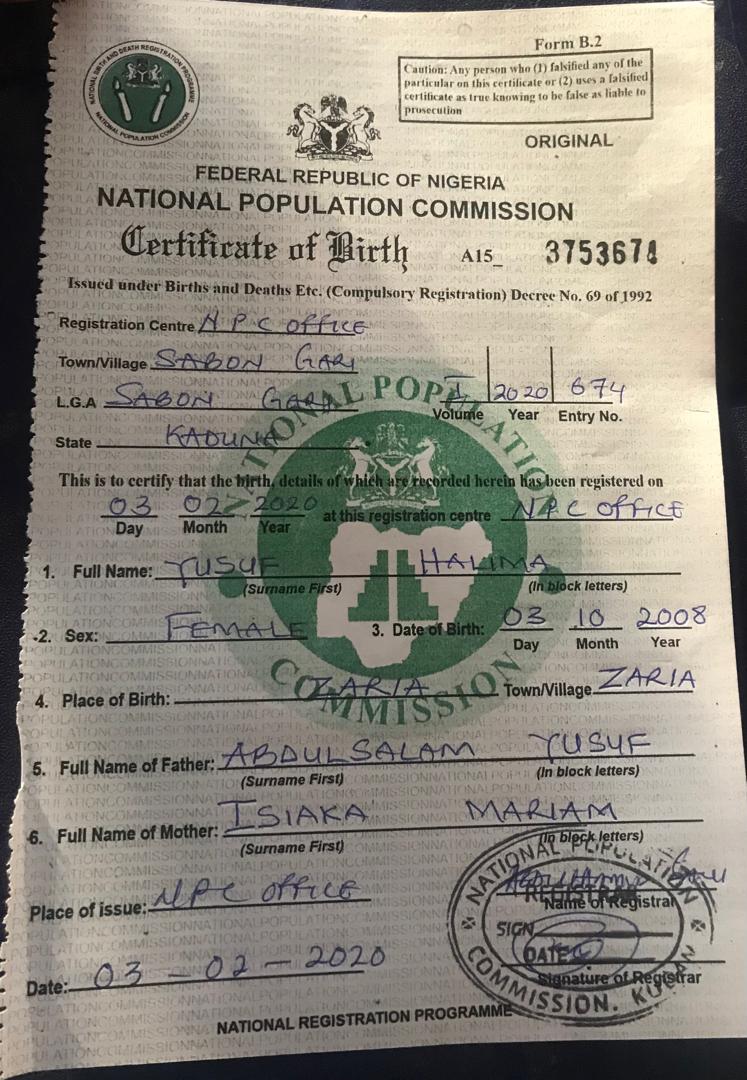 NATIONAL BIRTH AND DEATH REGISTRATION PROGRAMME
NATIONAL POPULATION COMMISSION
Form B.2
Caution: Any person who (1) falsified any of the
particular on this certificate or (2) uses a falsified
certificate as true knowing to be false as liable to
prosecution
ORIGINAL
FEDERAL REPUBLIC OF NIGERIA
NATIONAL POPULATION COMMISSION
Certificate of Birth A15_ 3753674
Issued under Births and Deaths Etc. (Compulsory Registration) Decree No. 69 of 1992
Registration Centre NPC OFFICE
Town/Village SABON GARI
L.G.A SABON GARI I 2020 674
Volume Year Entry No.
State KADUNA
NATIONAL POPULATION
This is to certify that the birth, details of which are recorded herein has been registered on
03 02 2020 at this registration centre NPC OFFICE
Day Month Year
1. Full Name: YUSUF HALIMA
(Surname First) (In block letters)
2. Sex: FEMALE 3. Date of Birth: 03 10 2008
Day Month Year
4. Place of Birth: ZARIA Town/Village ZARIA
COMMISSION
5. Full Name of Father: ABDULSALAM YUSUF
(Surname First) (In block letters)
6. Full Name of Mother: ISIAKA MARIAM
(Surname First) (In block letters)
NATIONAL POPULATION
Place of issue: NPC OFFICE
REGISTRAR
Name of Registrar
SIGN
DATE
Date: 03 - 02 - 2020
Signature of Registrar
COMMISSION.
NATIONAL REGISTRATION PROGRAMME